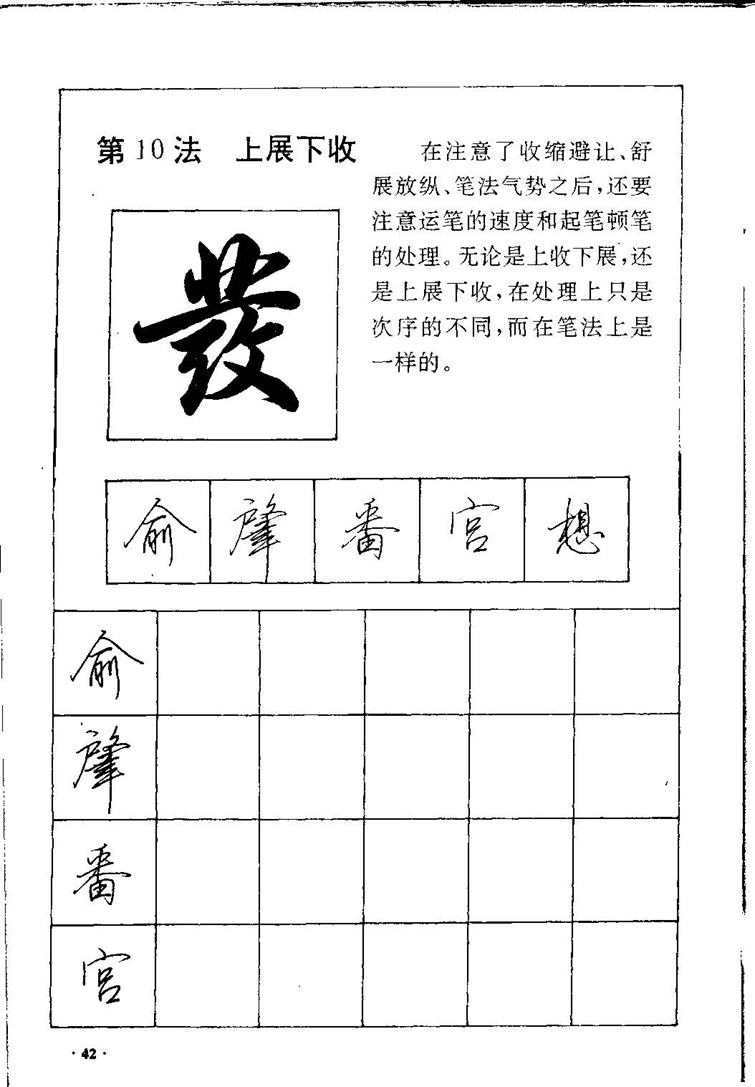 第10法 上展下收
在注意了收缩避让、舒
展放纵、笔法气势之后,还要
注意运笔的速度和起笔顿笔
的处理。无论是上收下展,还
是上展下收,在处理上只是
次序的不同,而在笔法上是
一样的。
發
俞 肇 番 宫 想
俞
肇
番
宫
·42·